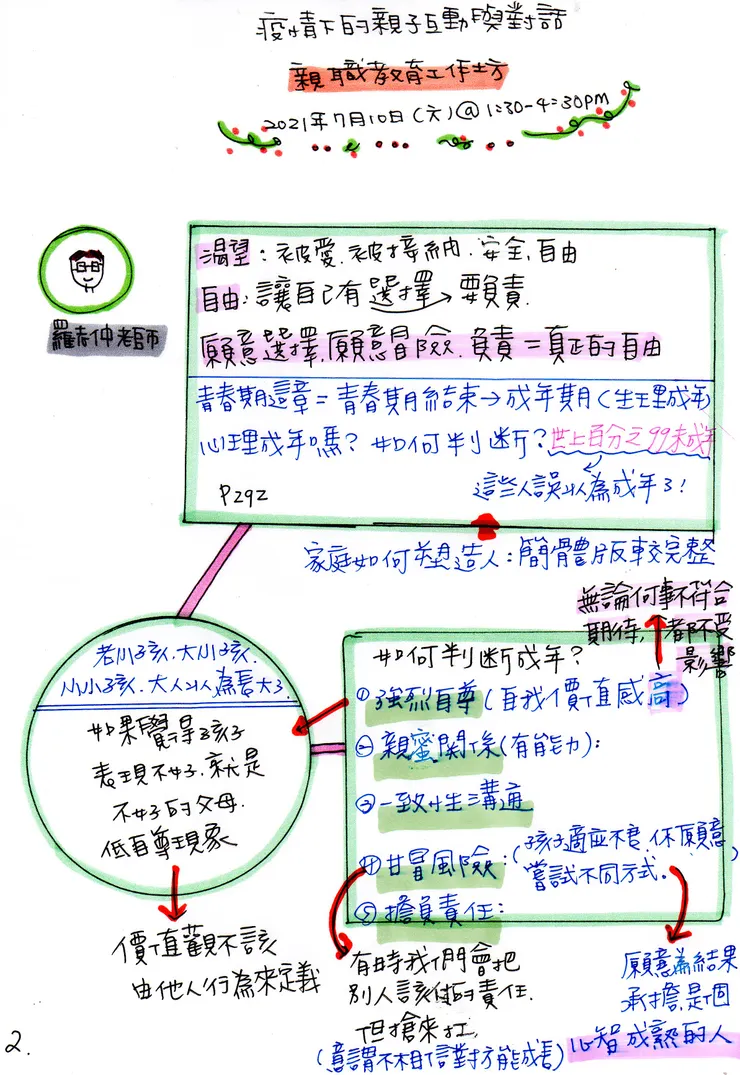 疫情下的親子互動與對話
親職教育工作坊
2021年7月10日(六)@1:30-4:30pm
羅志仲老師
渴望:被愛.被接納.安全.自由
自由:讓自己有選擇→要負責.
願意選擇,願意冒險.負責=真正的自由
青春期這章=青春期結束→成年期(生理成年)
心理成年嗎?如何判断?世上百分之99未成年
這些人誤以為成年了!
P292
家庭如何塑造人:簡體版較完整
老小孩.大小孩.
小小孩.大人以為長大了.
如果覺得孩子
表現不好.就是
不好的父母.
低自尊現象
價值觀不該
由他人行為來定義
無論何事不符合
期待,都不受
影響
如何判断成年?
①強烈自尊(自我價值感高)
②親蜜關係(有能力):
③一致性溝通
④甘冒風險:(孩子適應不良,你願意
嘗試不同方式.)
⑤擔負責任:
有時我們會把
別人該做的責任.
但搶來扛,
(意謂不相信對方能成長)
願意為結果
承擔,是個
心智成熟的人
2.